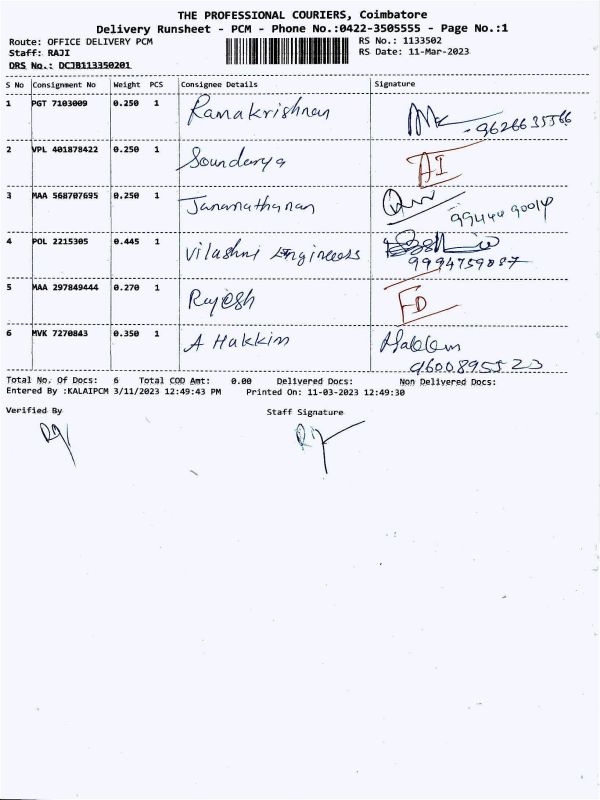 THE PROFESSIONAL COURIERS, Coimbatore
Delivery Runsheet - PCM - Phone No.:0422-3505555 - Page No.:1
Route: OFFICE DELIVERY PCM RS No.: 1133502
Staff: RAJI RS Date: 11-Mar-2023
DRS No.: DCJB113350201
S No Consignment No Weight PCS Consignee Details Signature
1 PGT 7103009 0.250 1 Ramakrishnan 9626635566
2 VPL 401878422 0.250 1 Soundarya AI
3 MAA 568707695 0.250 1 Jananathanan
4 POL 2215305 0.445 1 Vilashni Engineers 9994759087
5 MAA 297849444 0.270 1 Rajesh FD
6 MVK 7270843 0.350 1 A Hakkim Hakkim
9600895523
Total No. Of Docs: 6 Total COD Amt: 0.00 Delivered Docs: Non Delivered Docs:
Entered By :KALAIPCM 3/11/2023 12:49:43 PM Printed On: 11-03-2023 12:49:30
Verified By Staff Signature